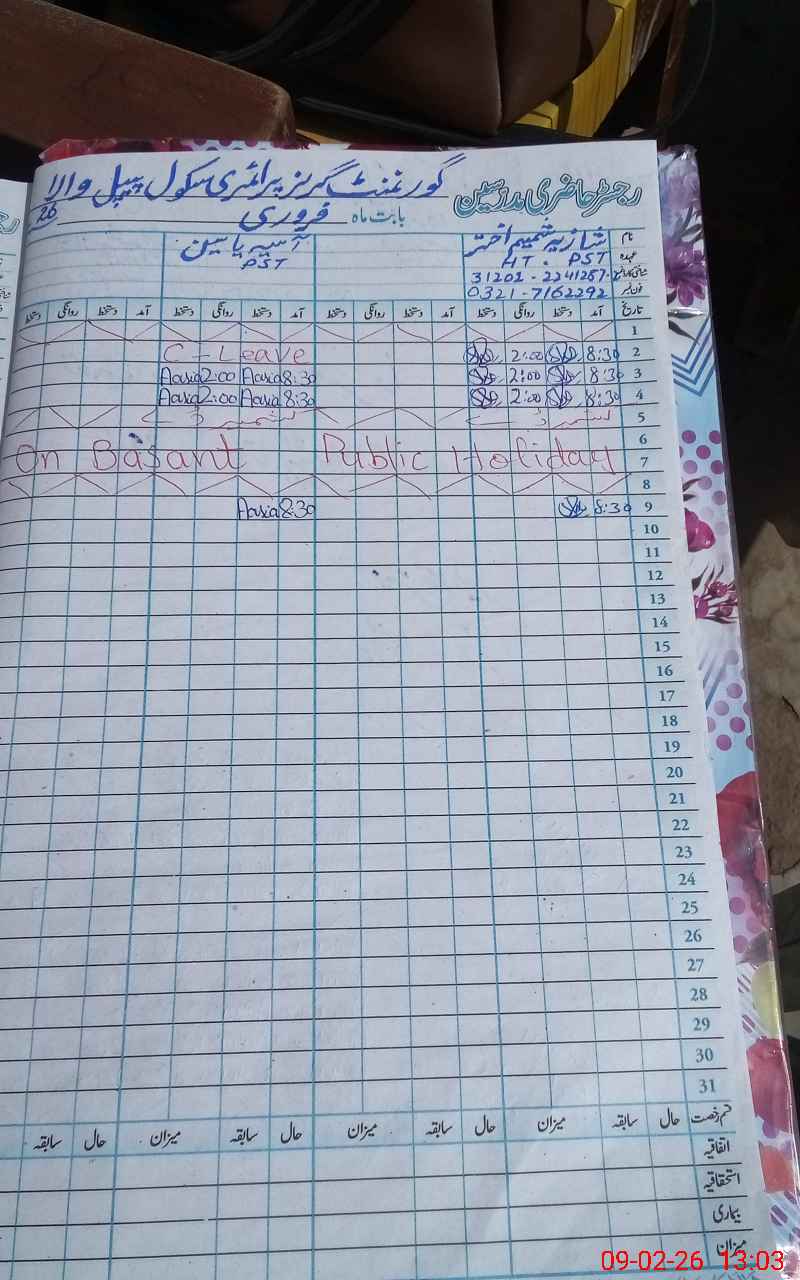 رجسٹر حاضری مدرسین گورنمنٹ گرلز پرائمری سکول پیپل والا
بابت ماہ فروری 26
نام شازیہ شمیم اختر آسیہ یاسین
عہدہ HT. PST PST
31201-2241287-
فون نمبر 0321-7162292
تاریخ آمد دستخط روانگی دستخط آمد دستخط روانگی دستخط آمد دستخط روانگی دستخط آمد دستخط روانگی دستخط
1
2 8:30 2:00 C-Leave
3 8:30 2:00 8:30 Aasia 2:00 Aasia
4 8:30 2:00 8:30 Aasia 2:00 Aasia
5
6
7
On Basant Public Holiday
8
9 8:30 8:30 Aasia
10
11
12
13
14
15
16
17
18
19
20
21
22
23
24
25
26
27
28
29
30
31
قسم رخصت حال سابقہ میزان حال سابقہ میزان حال سابقہ میزان حال سابقہ
اتفاقیہ
استحقاقیہ
بیماری
میزان
09-02-26 13:03